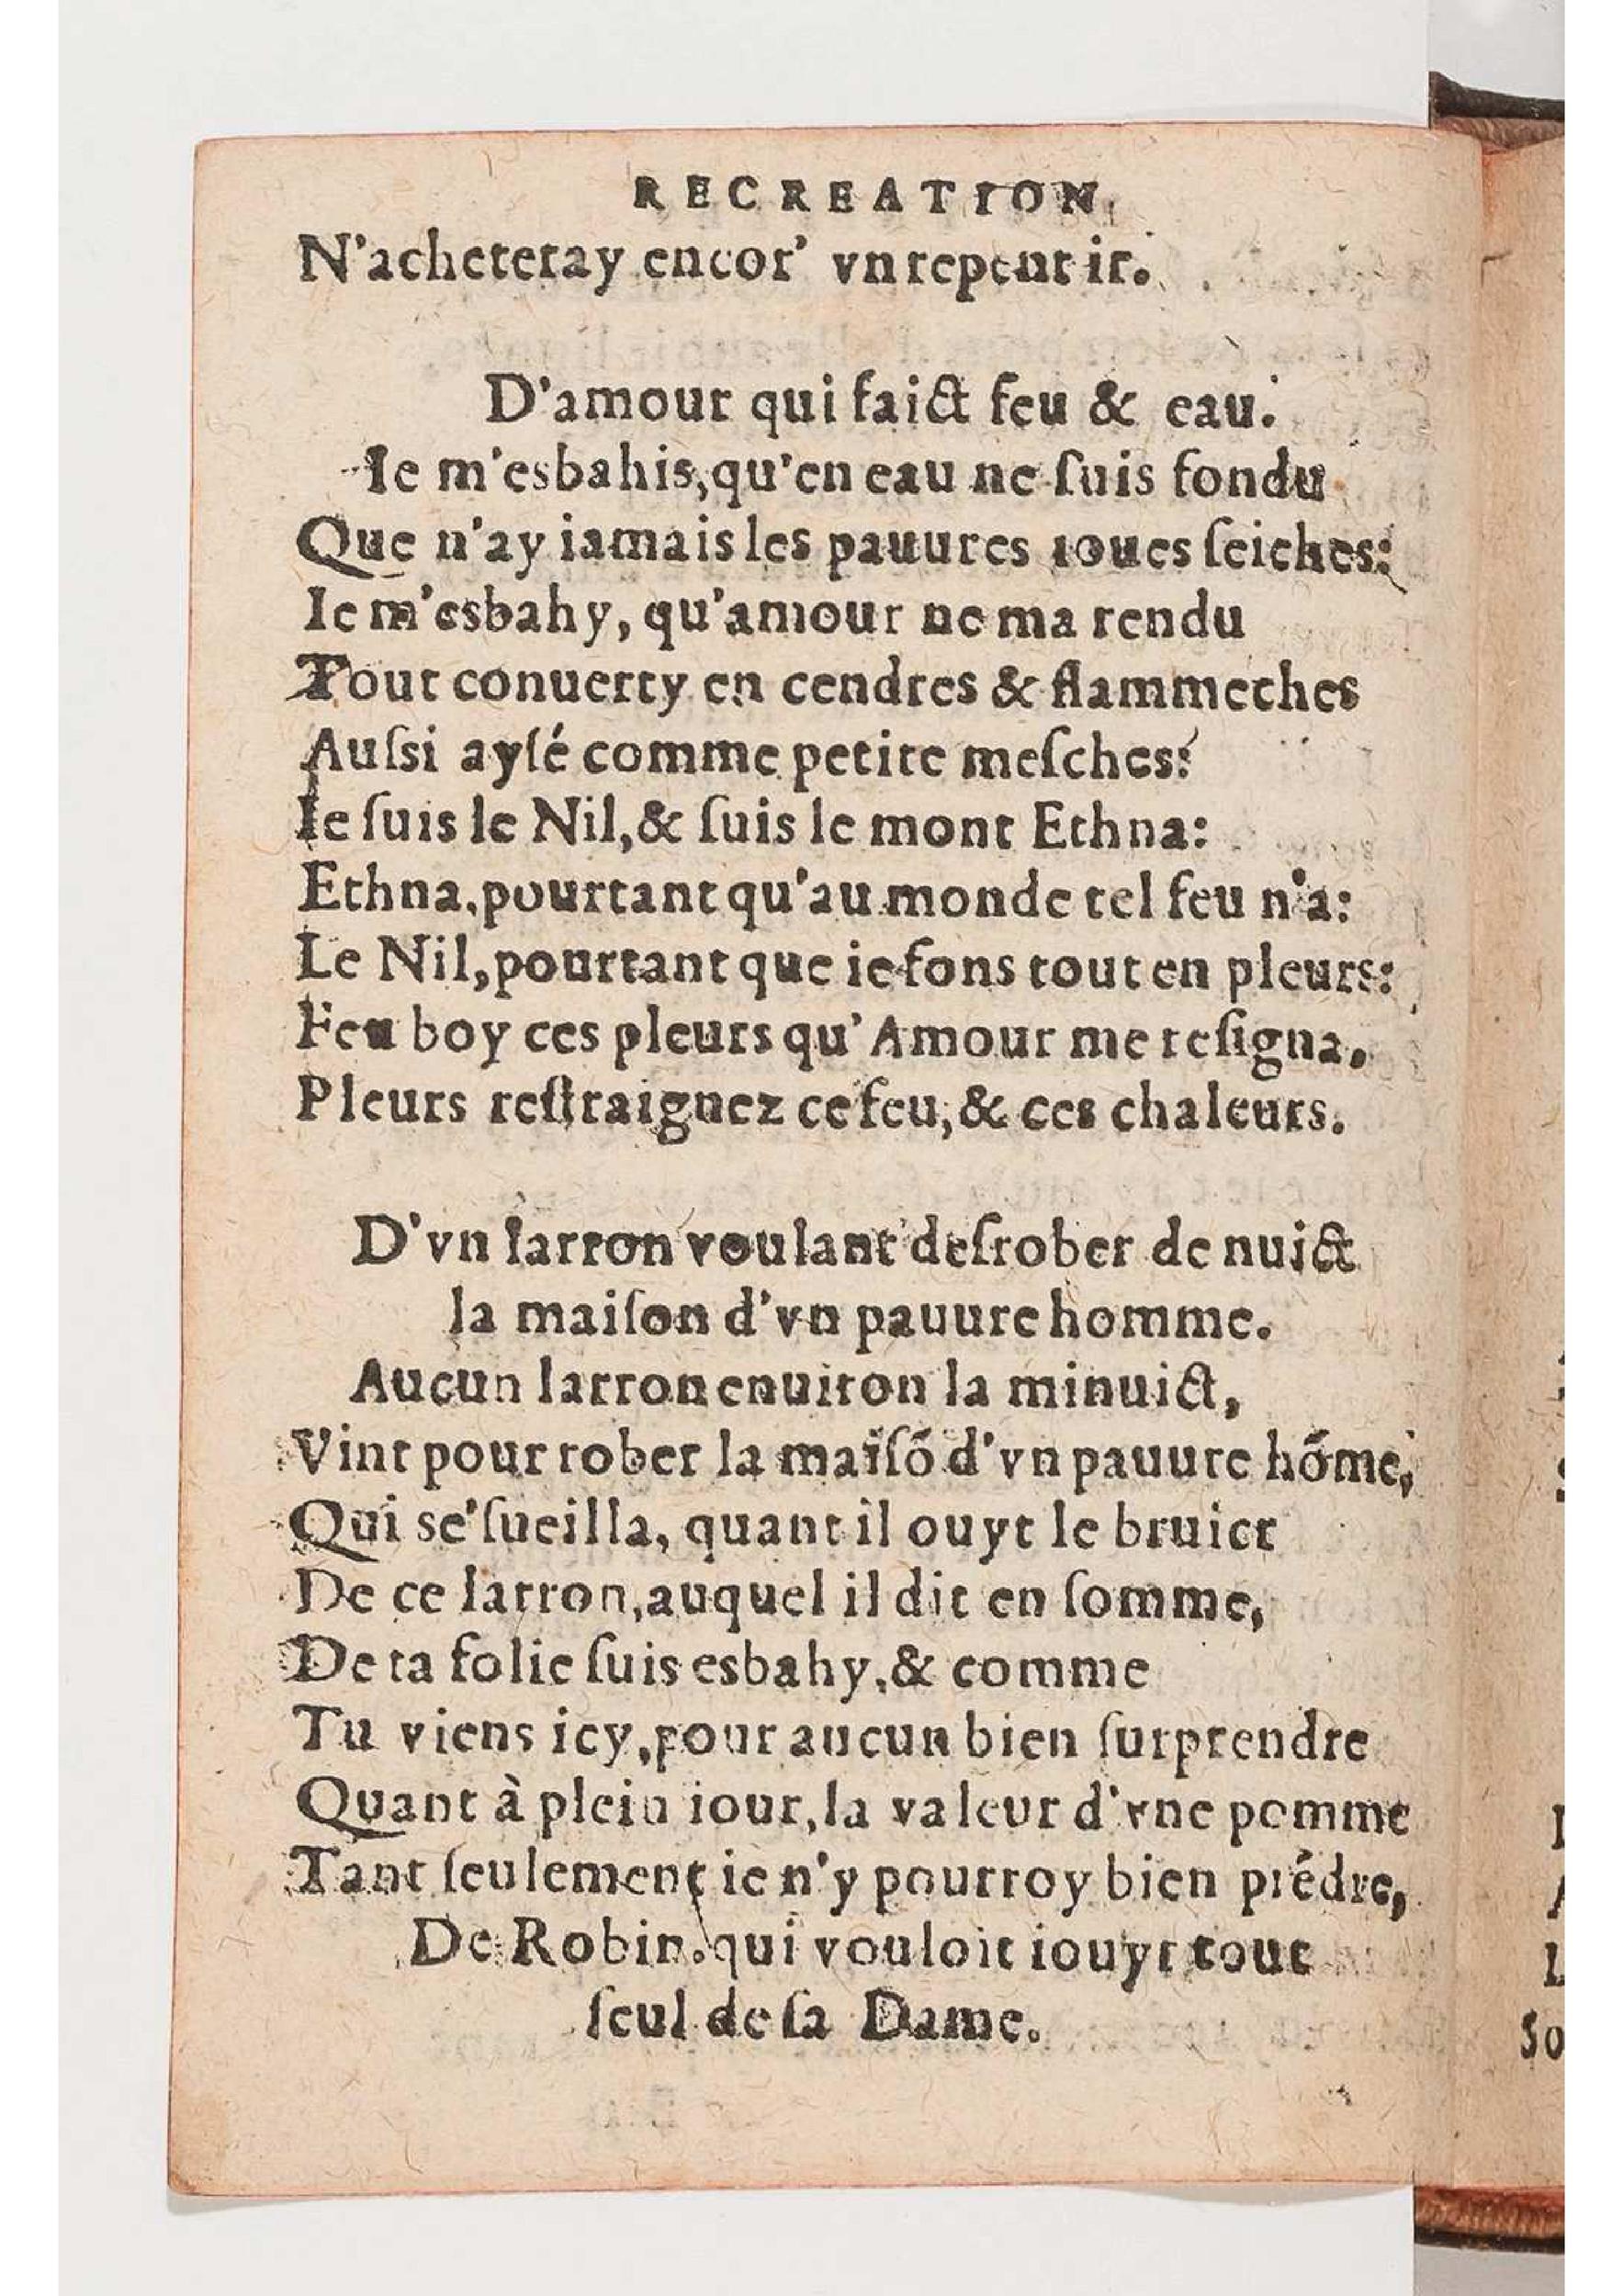 RECREATION
N'acheteray encor' vn repentir.
D'amour qui faict feu & eau.
Ie m'esbahis, qu'en eau ne ſuis fondu
Que n'ay iamais les pauures ioues ſeiches:
Ie m'esbahy, qu'amour ne ma rendu
Tout conuerty en cendres & flammeches
Auſsi ayſé comme petite meſches:
Ie ſuis le Nil, & ſuis le mont Ethna:
Ethna, pourtant qu'au monde tel feu n'a:
Le Nil, pourtant que ie fons tout en pleurs:
Feu boy ces pleurs qu'Amour me reſigna,
Pleurs reſtraignez ce feu, & ces chaleurs.
D'vn larron voulant deſrober de nuict
la maiſon d'vn pauure homme.
Aucun larron enuiron la minuict,
Vint pour rober la maiſõ d'vn pauure hõme,
Qui se'ſueilla, quant il ouyt le bruict
De ce larron, auquel il dit en ſomme,
De ta folie ſuis esbahy, & comme
Tu viens icy, pour aucun bien ſurprendre
Quant à plein iour, la valeur d'vne pomme
Tant ſeulement ie n'y pourroy bien prẽdre,
De Robin. qui vouloit iouyr tout
ſeul de ſa Dame.
So